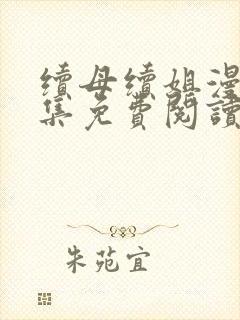 續母續姐漫
集免費閱讀
朱苑宜